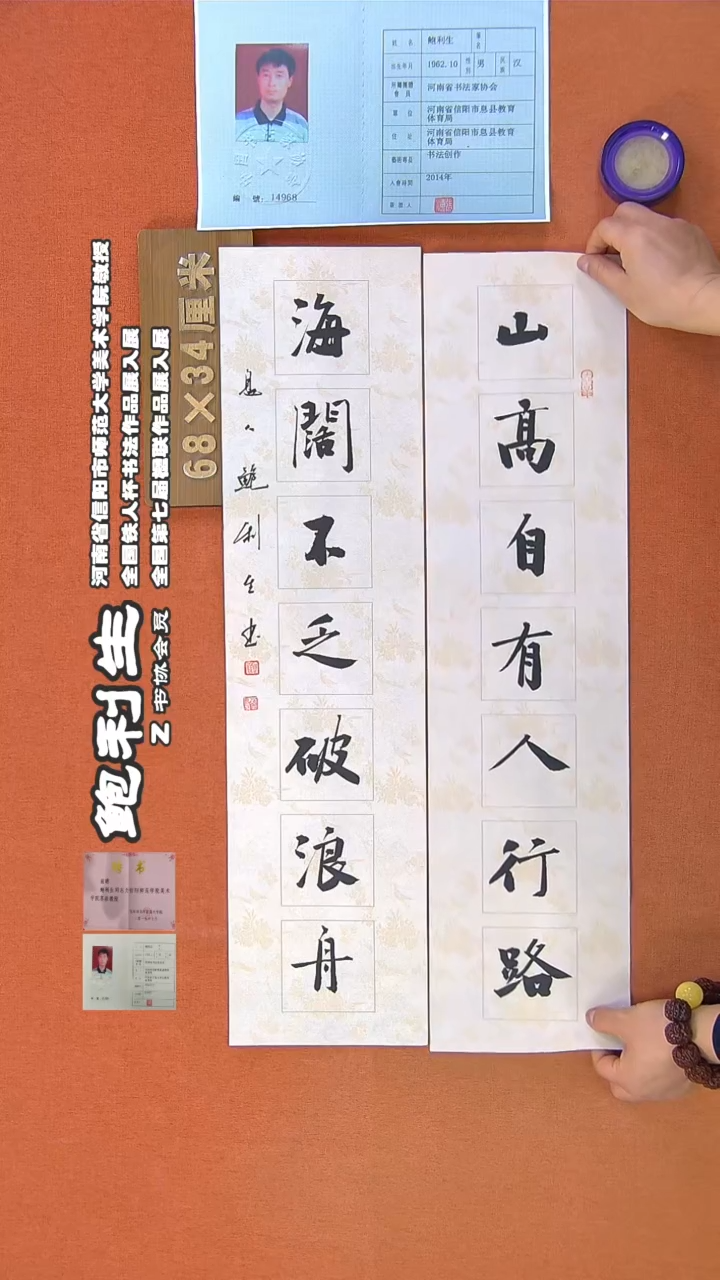 姓名 鲍利生
出生年月 1962.10 性别 男 民族 汉
河南省书法家协会
单位 河南省信阳市息县教育体育局
住址 河南省信阳市息县教育体育局
书法创作
入会时间 2014年
编號：14968
68×34厘米
山高自有人行路
海闊不乏破浪舟
息人鲍利生书
河南省信阳市师范大学美术学院教授
全国铁人杯书法作品展入展
全国第七届楹联作品展入展
鲍利生
Z 书协会员
聘书